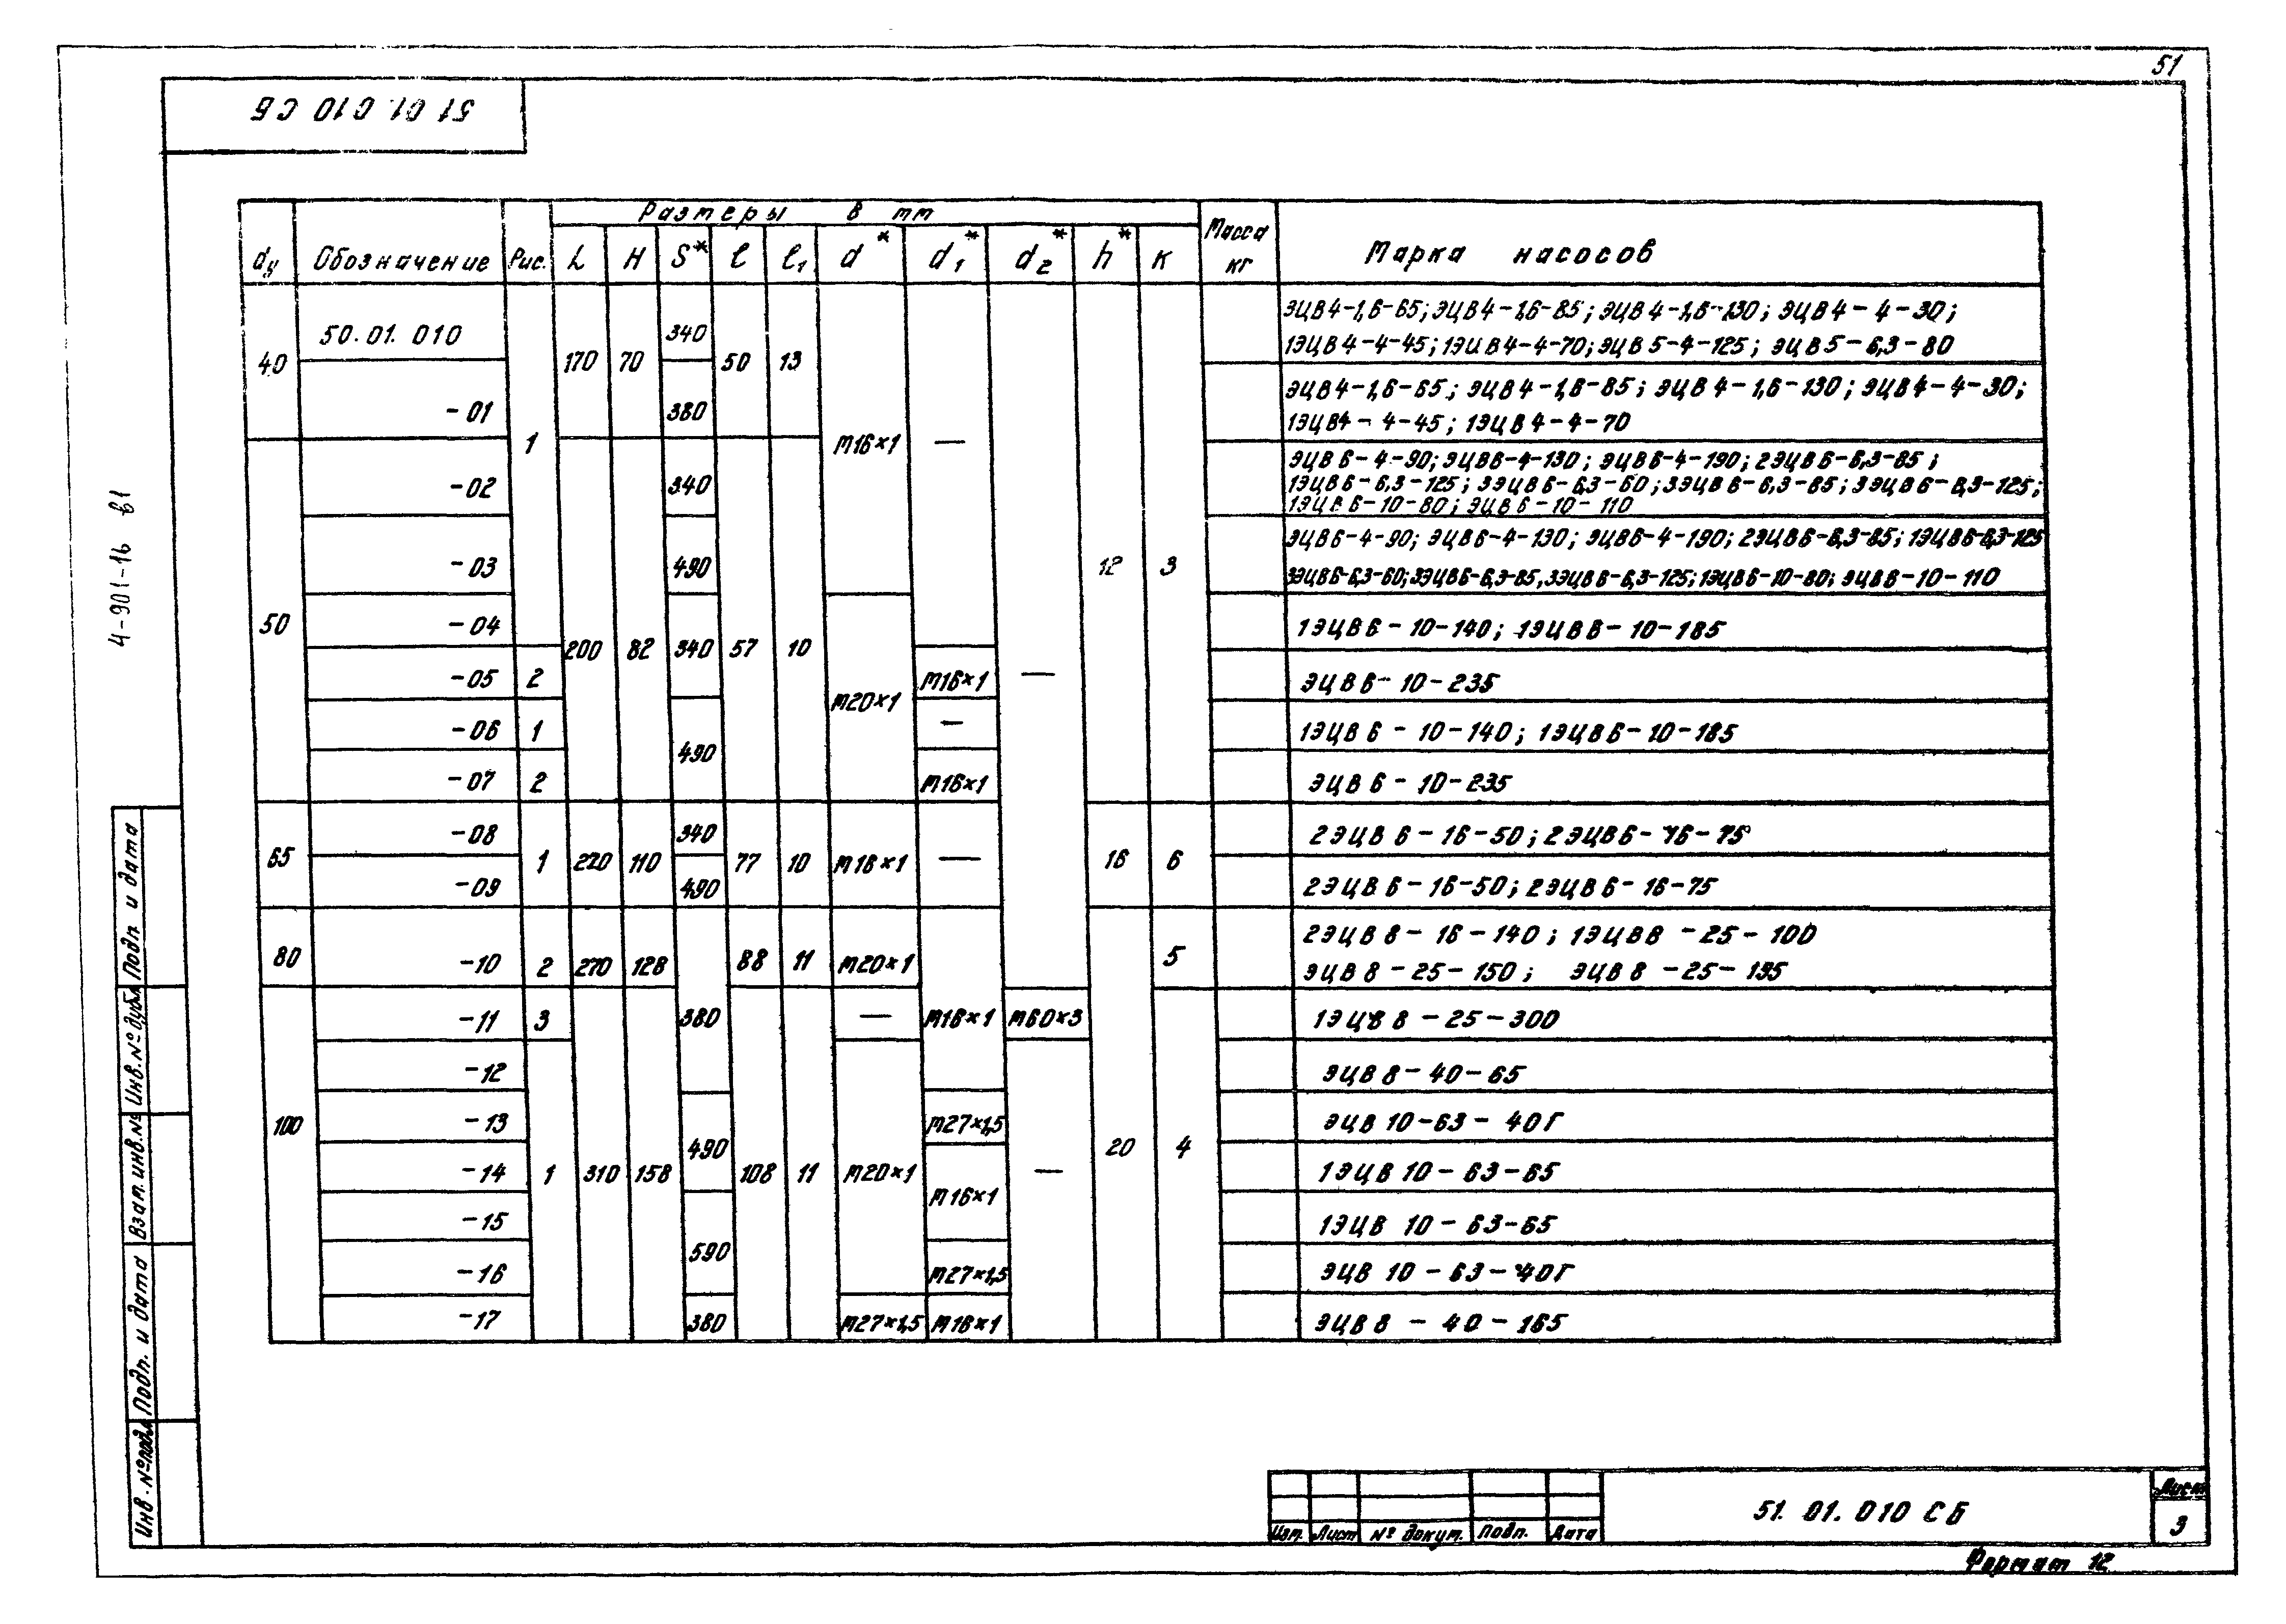 51
51 01. 010 СБ
4-901-16 в1
Размеры в мм
dу Обозначение Рис. L H S* ℓ ℓ1 d* d1* d2* h* К Масса кг Марка насосов
40 50.01.010 1 170 70 340 50 13 М16×1 — — 12 3
ЭЦВ4-1,6-65; ЭЦВ4-1,6-85; ЭЦВ4-1,6-130; ЭЦВ4-4-30;
1ЭЦВ4-4-45; 1ЭЦВ4-4-70; ЭЦВ5-4-125; ЭЦВ5-6,3-80
-01 380
ЭЦВ4-1,6-65; ЭЦВ4-1,6-85; ЭЦВ4-1,6-130; ЭЦВ4-4-30;
1ЭЦВ4-4-45; 1ЭЦВ4-4-70
50 -02 200 82 340 57 10
ЭЦВ6-4-90; ЭЦВ6-4-130; ЭЦВ6-4-190; 2ЭЦВ6-6,3-85;
1ЭЦВ6-6,3-125; 3ЭЦВ6-6,3-60; 3ЭЦВ6-6,3-85; 3ЭЦВ6-6,3-125;
1ЭЦВ6-10-80; ЭЦВ6-10-110
-03 490
ЭЦВ6-4-90; ЭЦВ6-4-130; ЭЦВ6-4-190; 2ЭЦВ6-6,3-85; 1ЭЦВ6-6,3-125
3ЭЦВ6-6,3-60; 3ЭЦВ6-6,3-85, 3ЭЦВ6-6,3-125; 1ЭЦВ6-10-80; ЭЦВ6-10-110
-04 340 М20×1 1ЭЦВ6-10-140; 1ЭЦВ6-10-185
-05 2 М16×1 ЭЦВ6-10-235
-06 1 490 — 1ЭЦВ6-10-140; 1ЭЦВ6-10-185
-07 2 М16×1 ЭЦВ6-10-235
65 -08 1 220 110 340 77 10 М16×1 — 16 6 2ЭЦВ6-16-50; 2ЭЦВ6-16-75
-09 490 2ЭЦВ6-16-50; 2ЭЦВ6-16-75
80 -10 2 270 128 380 88 11 М20×1 М16×1 20 5
2ЭЦВ8-16-140; 1ЭЦВ8-25-100
ЭЦВ8-25-150; ЭЦВ8-25-195
100 -11 3 310 158 108 11 — М60×3 4 1ЭЦВ8-25-300
-12 1 М20×1 — ЭЦВ8-40-65
-13 490 М27×1,5 ЭЦВ10-63-40Г
-14 М16×1 1ЭЦВ10-63-65
-15 590 1ЭЦВ10-63-65
-16 М27×1,5 ЭЦВ10-63-40Г
-17 380 М27×1,5 М16×1 ЭЦВ8-40-165
Инв. № подл.
Подп. и дата
Взам. инв. №
Инв. № дубл.
Подп и дата
Изм. Лист № докум. Подп. Дата
51. 01. 010 СБ
Лист
3
Формат 12